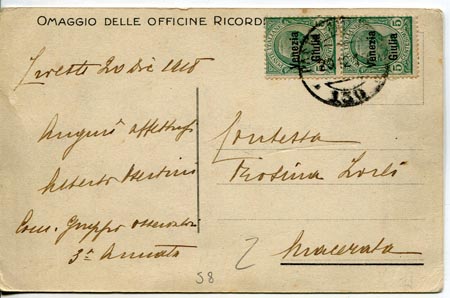 OMAGGIO DELLE OFFICINE RICORDI
Venezia
Giulia
5
Venezia
Giulia
5
130
Trieste 20 Dic 1918
Auguri affettuosi
Alberto
Com. Gruppo Osservatori
3ª Armata
Contessa
Rosina
Macerata
58